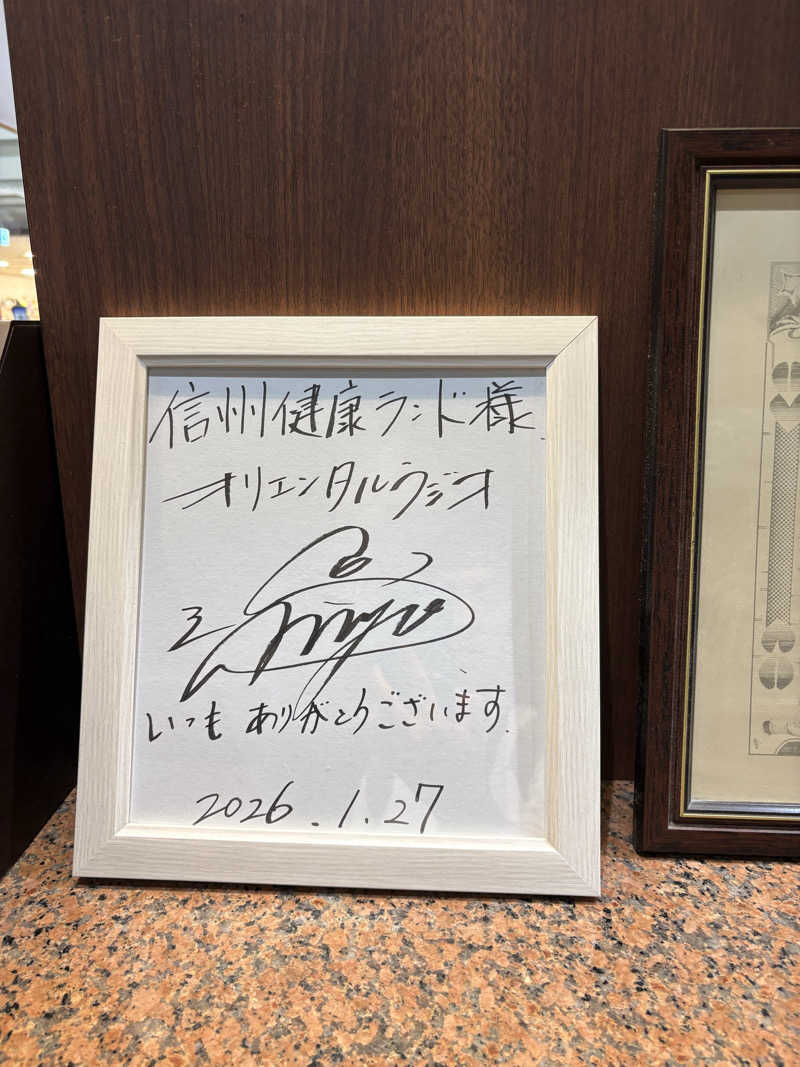 信州健康ランド様
オリエンタルラジオ
いつもありがとうございます.
2026.1.27